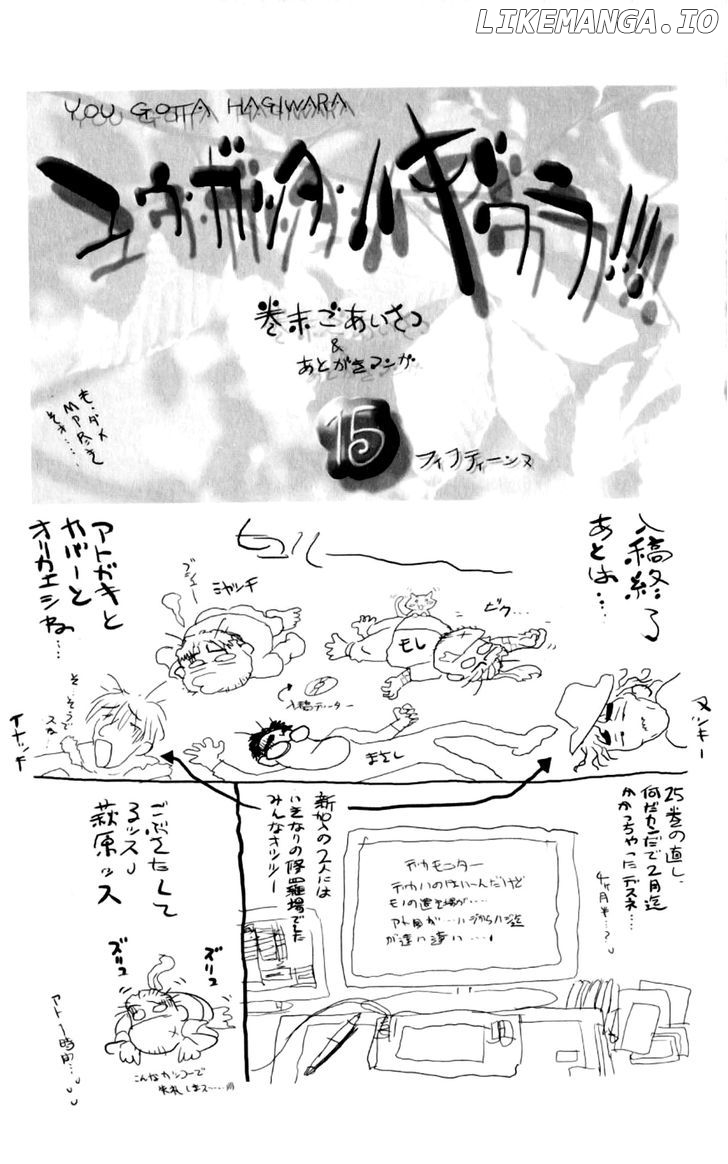 LIKEMANGA.IO
YOU GOTTA HAGIWARA
ユウ・ガッタ・ハギワラ!!!
巻末ごあいさつ
&
あとがきマンガ
15
フィフティーンヌ
も、ダメ
入稿終了
あとは…
ヌッキー
ビク…
もし
ミヤッチ
入稿データー
まさし
アトガキと
カバーと
オリカエシやね…
そ…そうで
スね…
イナッチ
25巻の直し、
何だカンだで2月迄
かかっちゃったデスネ…
4ヶ月半…?
デカモニター
デカいのはいーんだけど
モノの置き場が…
が遠い遠い…
新加入の2人には
いきなりの修羅場でした
みんなオツツー
ごぶさたして
るッスぃ
萩原ッス
ズリュ
ズリュ
こんなカッコーで
失礼しまス……
アト1時間…